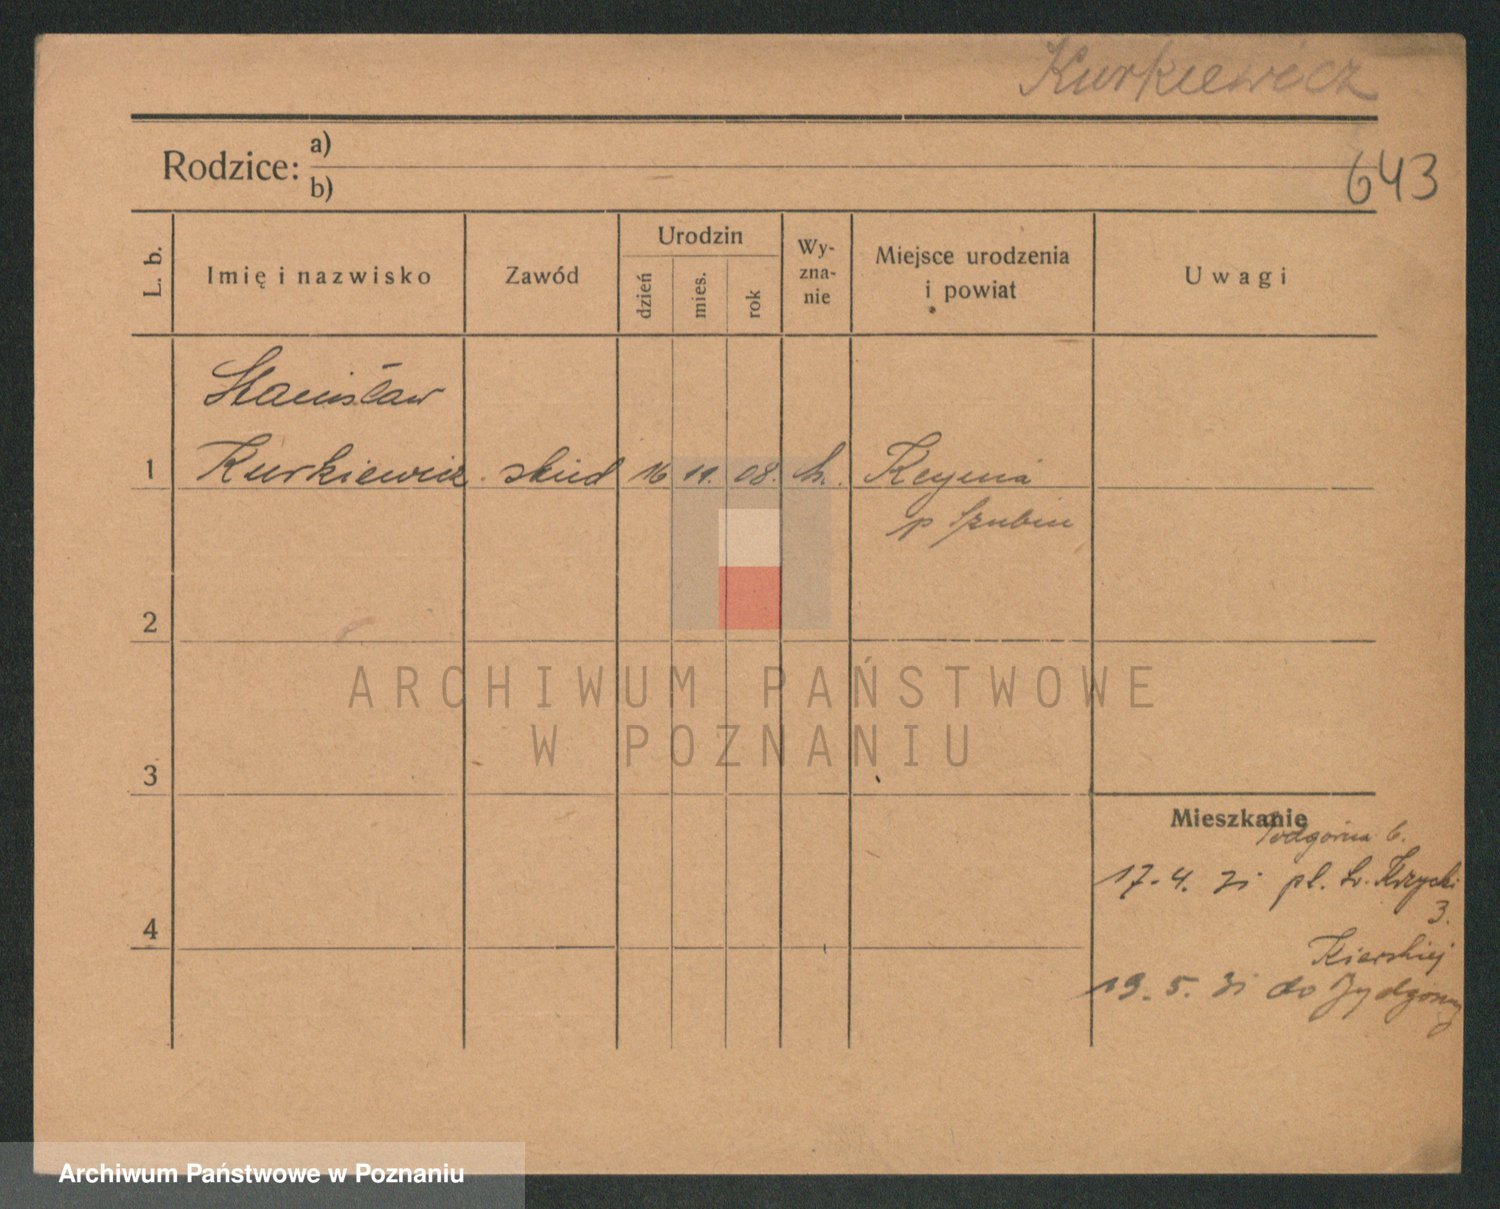 Kurkiewicz
643
Rodzice: a)
b)
L. b.
Imię i nazwisko
Zawód
Urodzin
dzień
mies.
rok
Wy-
zna-
nie
Miejsce urodzenia
i powiat
Uwagi
Stanisław
1 Kurkiewicz stud 16 11. 08. Kcynia
p Szubin
2
ARCHIWUM PAŃSTWOWE
W POZNANIU
3
Mieszkanie
Podgórna 6.
17.4. 31 pl.
3.
4
19.5. 31 do
Archiwum Państwowe w Poznaniu